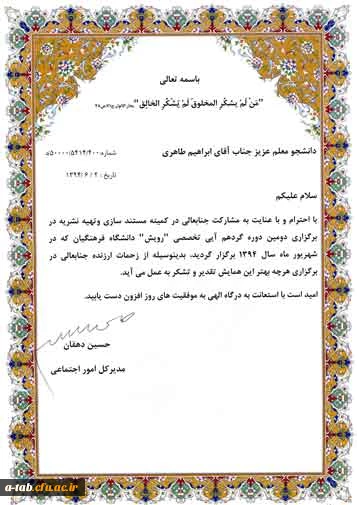 باسمه تعالی
"مَنْ لَمْ یشکُر المخلوق لَمْ یَشکُر الخالِق"
دانشجو معلم عزیز جناب آقای ابراهیم طاهری
شماره: ۵۰۰۰۰/۵۴۱۴/۴۰۰/د
تاریخ: ۱۳۹۴/۶/۲
سلام علیکم
با احترام و با عنایت به مشارکت جنابعالی در کمیته مستند سازی وتهیه نشریه در
برگزاری دومین دوره گردهم آیی تخصصی "رویش" دانشگاه فرهنگیان که در
شهریور ماه سال ۱۳۹۴ برگزار گردید، بدینوسیله از زحمات ارزنده جنابعالی در
برگزاری هرچه بهتر این همایش تقدیر و تشکر به عمل می آید.
امید است با استعانت به درگاه الهی به موفقیت های روز افزون دست یابید.
حسین دهقان
مدیرکل امور اجتماعی
a-tab.cfu.ac.ir